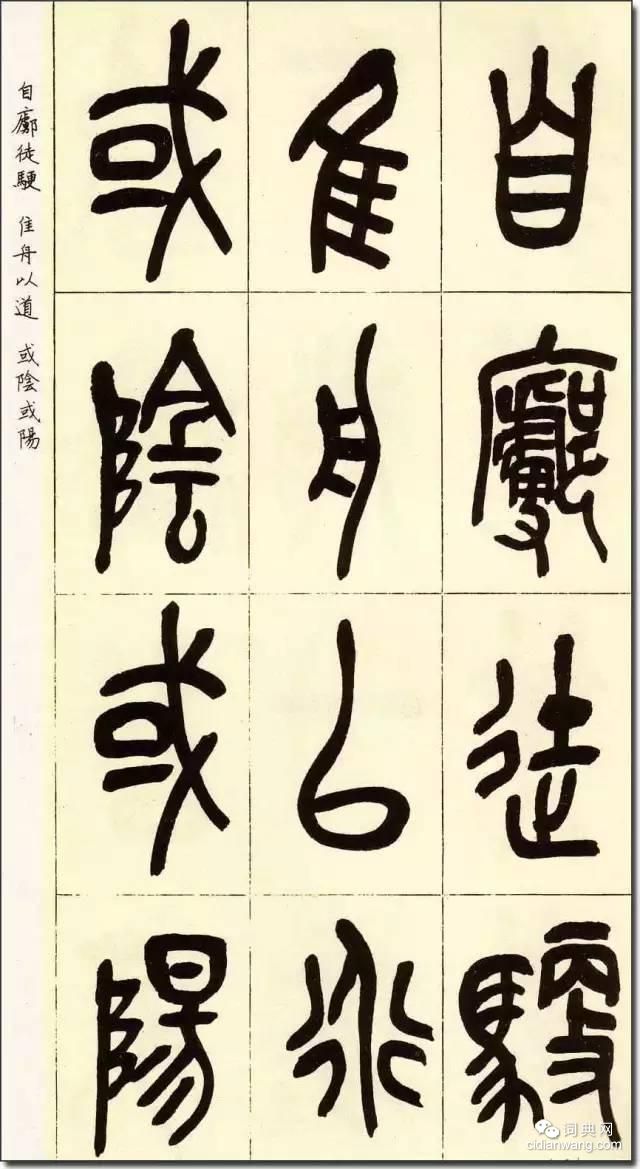 自廓徒
隹舟以道
或陰或陽
自廓徒 隹舟以道 或陰或陽
词典网
cidianwang.com